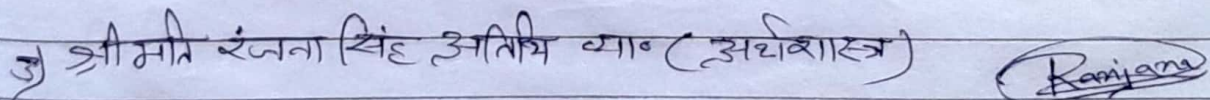 3) श्रीमति रंजना सिंह अतिथि व्या॰ (अर्थशास्त्र) Ranjana